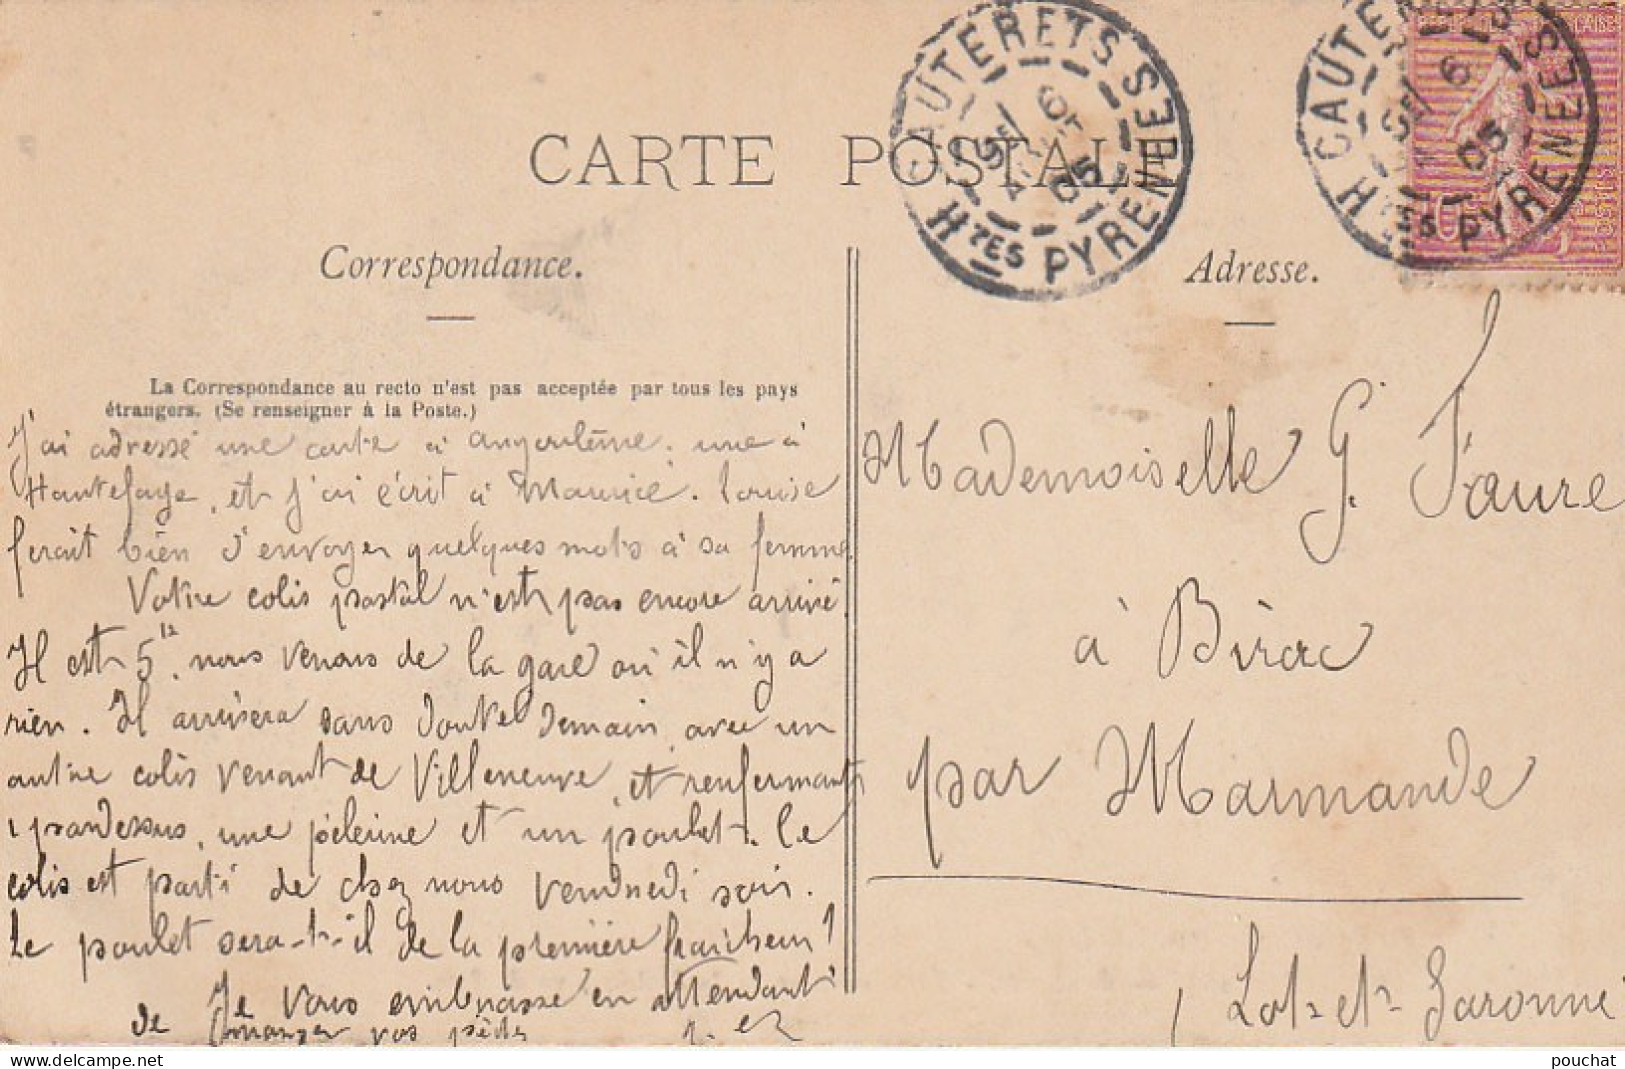 CARTE POSTALE
CAUTERETS
Htes PYRENEES
6
05
CAUTERETS
Htes PYRENEES
6
05
POSTES
10
Correspondance.
La Correspondance au recto n'est pas acceptée par tous les pays
étrangers. (Se renseigner à la Poste.)
J'ai adressé une carte à Angoulême, une à
Hautefaye, et j'ai écrit à Maurice. Louise
ferait bien d'envoyer quelques mots à sa femme
Votre colis postal n'est pas encore arrivé.
Il est 5 12, nous venons de la gare où il n'y a
rien. Il arrivera sans doute demain, avec un
autre colis venant de Villeneuve, et renfermant
1 pardessus, une pèlerine et un poulet. Le
colis est parti de chez nous vendredi soir.
Le poulet sera-t-il de la première fraîcheur!
Je vous embrasse en attendant
de manger vos
Adresse.
Mademoiselle G. Faure
à Birac
par Marmande
Lot-et-Garonne
pouchat